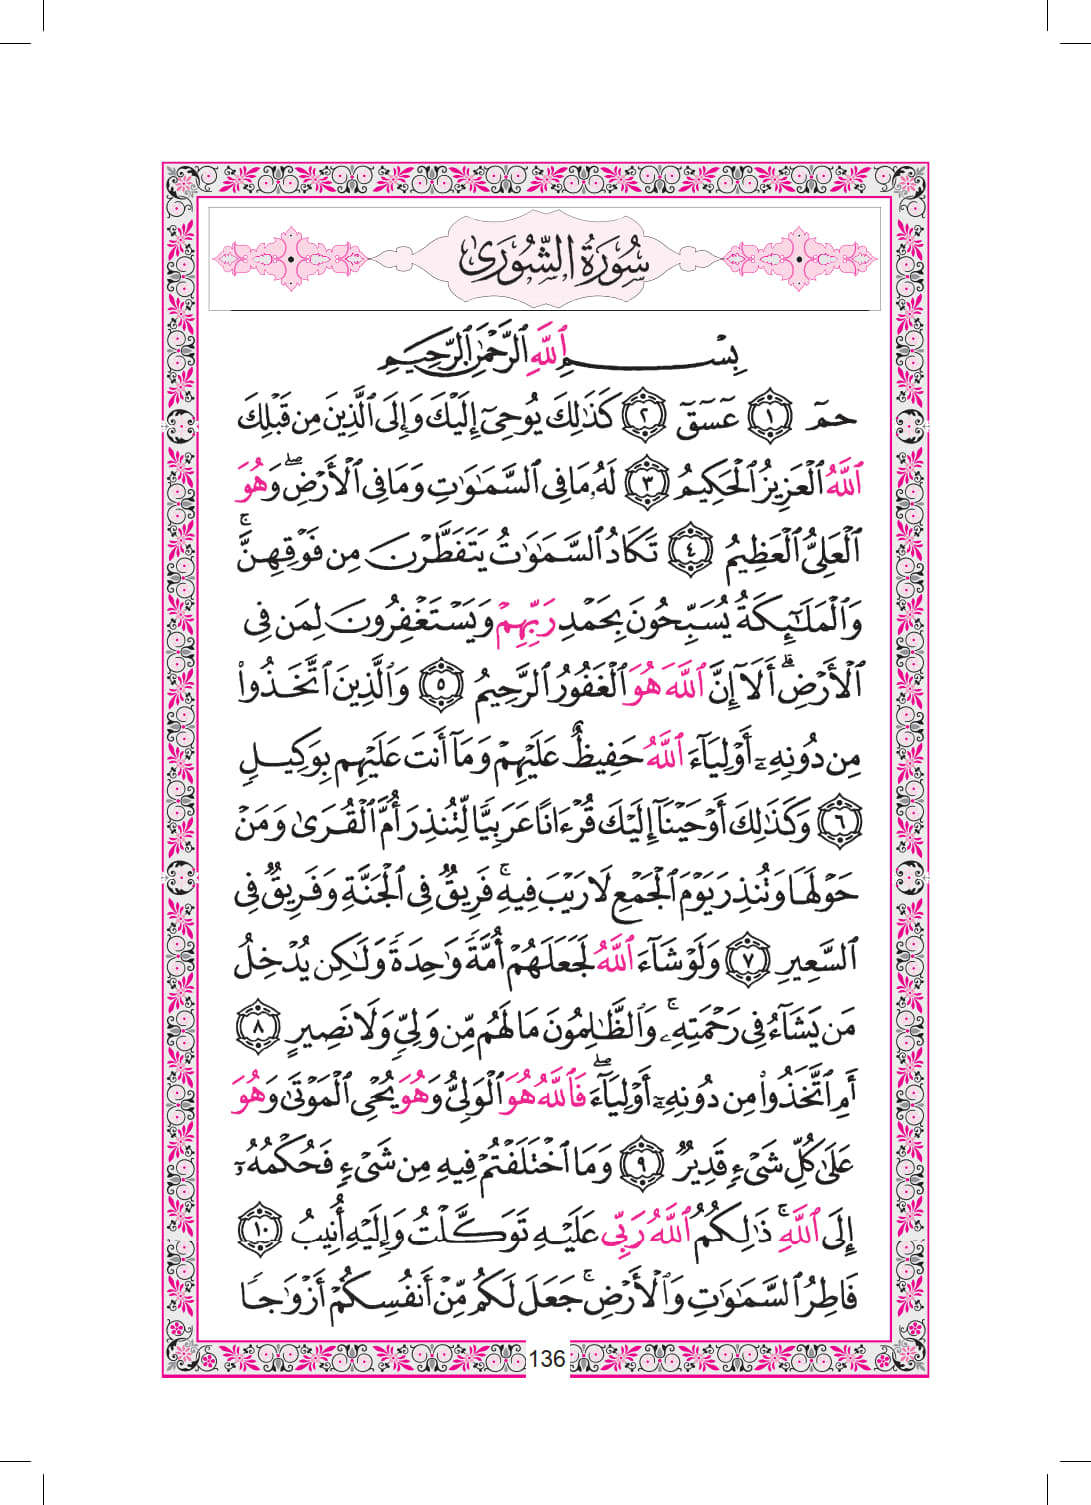 سُورَةُ الشُّورَىٰ
بِسْمِ ٱللَّهِ ٱلرَّحْمَٰنِ ٱلرَّحِيمِ
حمٓ ١ عٓسٓقٓ ٢ كَذَٰلِكَ يُوحِىٓ إِلَيْكَ وَإِلَى ٱلَّذِينَ مِن قَبْلِكَ
ٱللَّهُ ٱلْعَزِيزُ ٱلْحَكِيمُ ٣ لَهُۥ مَا فِى ٱلسَّمَٰوَٰتِ وَمَا فِى ٱلْأَرْضِ ۖ وَهُوَ
ٱلْعَلِىُّ ٱلْعَظِيمُ ٤ تَكَادُ ٱلسَّمَٰوَٰتُ يَتَفَطَّرْنَ مِن فَوْقِهِنَّ ۚ
وَٱلْمَلَٰٓئِكَةُ يُسَبِّحُونَ بِحَمْدِ رَبِّهِمْ وَيَسْتَغْفِرُونَ لِمَن فِى
ٱلْأَرْضِ ۗ أَلَآ إِنَّ ٱللَّهَ هُوَ ٱلْغَفُورُ ٱلرَّحِيمُ ٥ وَٱلَّذِينَ ٱتَّخَذُوا۟
مِن دُونِهِۦٓ أَوْلِيَآءَ ٱللَّهُ حَفِيظٌ عَلَيْهِمْ وَمَآ أَنتَ عَلَيْهِم بِوَكِيلٍ
٦ وَكَذَٰلِكَ أَوْحَيْنَآ إِلَيْكَ قُرْءَانًا عَرَبِيًّا لِّتُنذِرَ أُمَّ ٱلْقُرَىٰ وَمَنْ
حَوْلَهَا وَتُنذِرَ يَوْمَ ٱلْجَمْعِ لَا رَيْبَ فِيهِ ۚ فَرِيقٌ فِى ٱلْجَنَّةِ وَفَرِيقٌ فِى
ٱلسَّعِيرِ ٧ وَلَوْ شَآءَ ٱللَّهُ لَجَعَلَهُمْ أُمَّةً وَٰحِدَةً وَلَٰكِن يُدْخِلُ
مَن يَشَآءُ فِى رَحْمَتِهِۦ ۚ وَٱلظَّٰلِمُونَ مَا لَهُم مِّن وَلِىٍّ وَلَا نَصِيرٍ ٨
أَمِ ٱتَّخَذُوا۟ مِن دُونِهِۦٓ أَوْلِيَآءَ ۖ فَٱللَّهُ هُوَ ٱلْوَلِىُّ وَهُوَ يُحْىِ ٱلْمَوْتَىٰ وَهُوَ
عَلَىٰ كُلِّ شَىْءٍ قَدِيرٌ ٩ وَمَا ٱخْتَلَفْتُمْ فِيهِ مِن شَىْءٍ فَحُكْمُهُۥٓ
إِلَى ٱللَّهِ ۚ ذَٰلِكُمُ ٱللَّهُ رَبِّى عَلَيْهِ تَوَكَّلْتُ وَإِلَيْهِ أُنِيبُ ١٠
فَاطِرُ ٱلسَّمَٰوَٰتِ وَٱلْأَرْضِ ۚ جَعَلَ لَكُم مِّنْ أَنفُسِكُمْ أَزْوَٰجًا
136